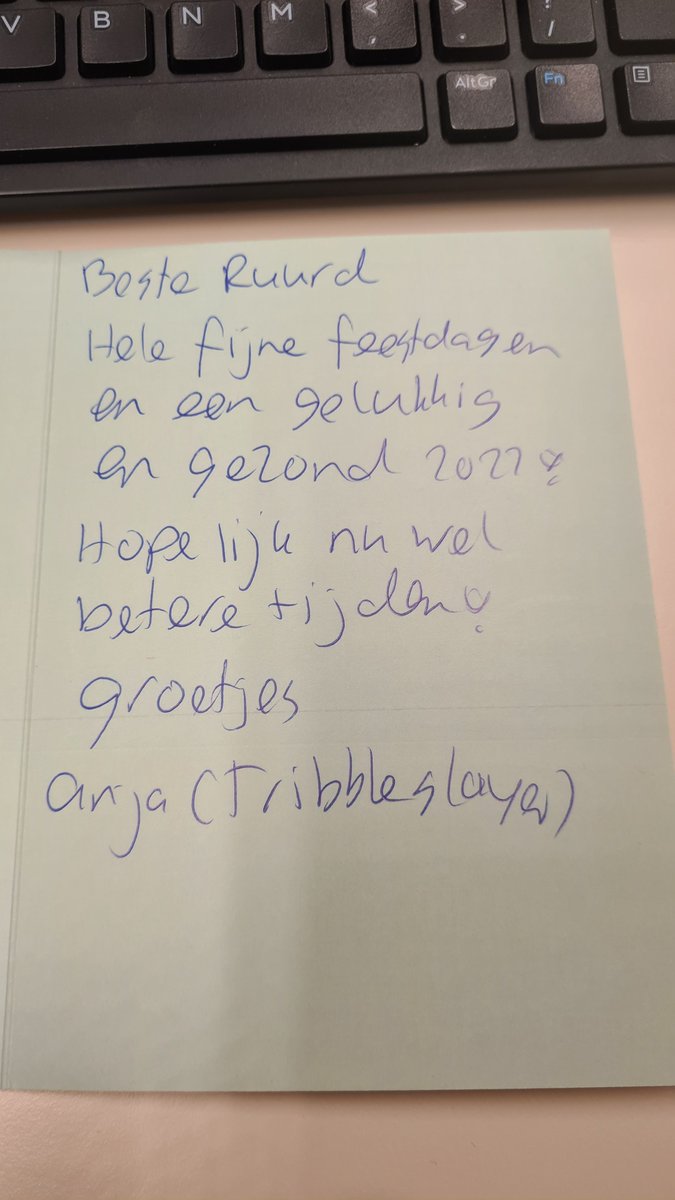 V B N M < , > . ! /
AltGr Fn
Beste Ruurd
Hele fijne feestdagen
en een gelukkig
en gezond 2022!
Hopelijk nu wel
betere tijden!
groetjes
Anja (Tribbleslayer)